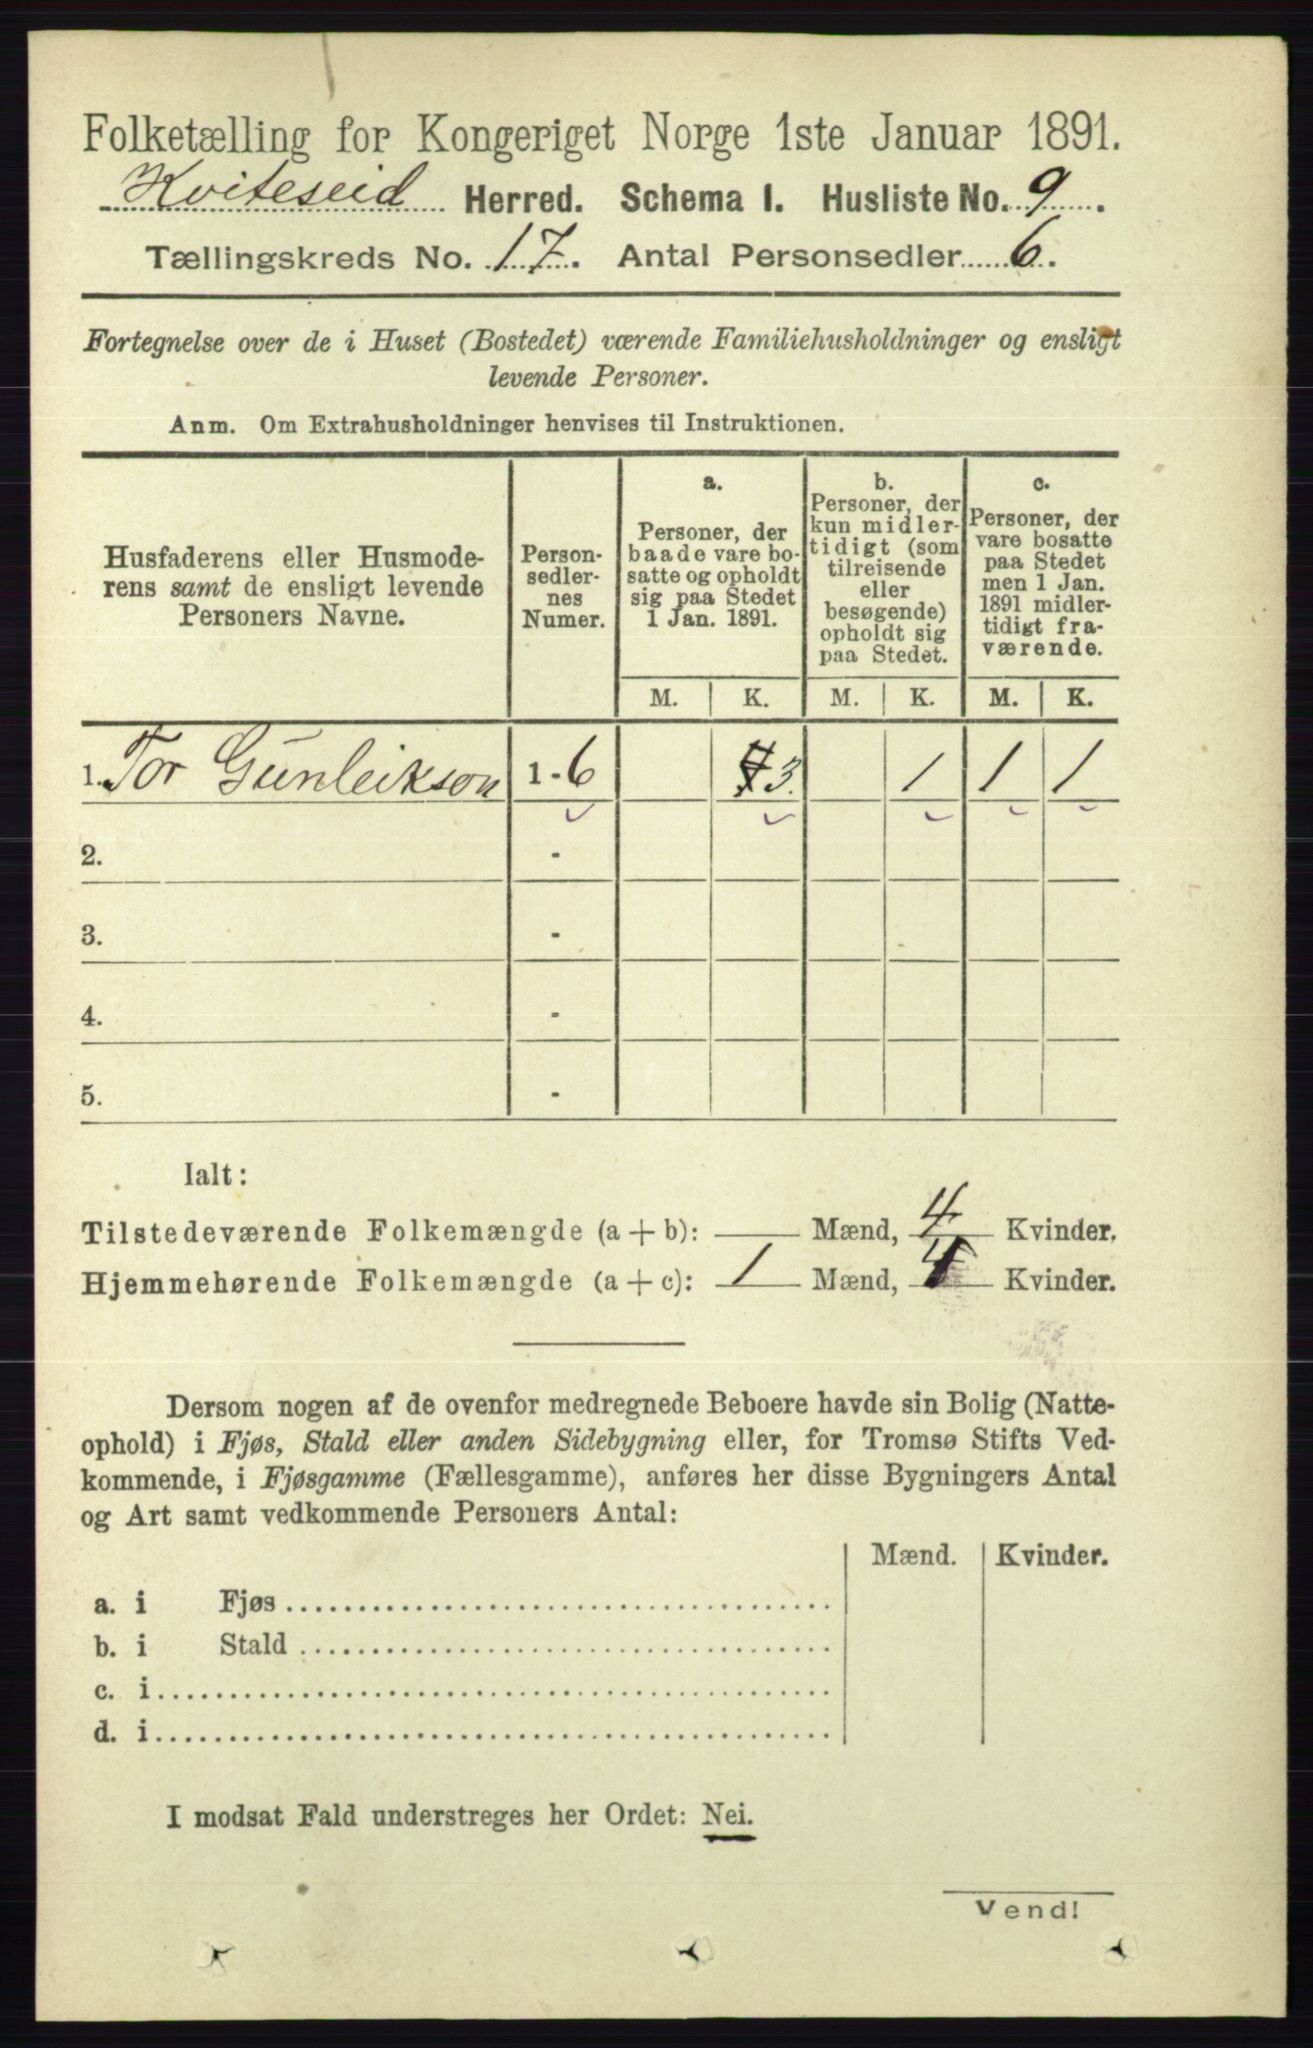 Folketælling for Kongeriget Norge 1ste Januar 1891.
Kviteseid Herred. Schema I. Husliste No. 9.
Tællingskreds No. 17. Antal Personsedler 6.
Fortegnelse over de i Huset (Bostedet) værende Familiehusholdninger og ensligt
levende Personer.
Anm. Om Extrahusholdninger henvises til Instruktionen.
Husfaderens eller Husmode-
rens samt de ensligt levende
Personers Navne.
Person-
sedler-
nes
Numer.
a.
Personer, der
baade vare bo-
satte og opholdt
sig paa Stedet
1 Jan. 1891.
b.
Personer, der
kun midler-
tidigt (som
tilreisende
eller
besøgende)
opholdt sig
paa Stedet.
c.
Personer, der
vare bosatte
paa Stedet
men 1 Jan.
1891 midler-
tidigt fra-
værende.
M. K. M. K. M. K.
1. Tor Gunleikson 1 - 6 3. 1 1 1
2. -
3. -
4. -
5. -
Ialt:
Tilstedeværende Folkemængde (a + b): Mænd, 4 Kvinder.
Hjemmehørende Folkemængde (a + c): 1 Mænd, 4 Kvinder.
Dersom nogen af de ovenfor medregnede Beboere havde sin Bolig (Natte-
ophold) i Fjøs, Stald eller anden Sidebygning eller, for Tromsø Stifts Ved-
kommende, i Fjøsgamme (Fællesgamme), anføres her disse Bygningers Antal
og Art samt vedkommende Personers Antal:
Mænd. Kvinder.
a. i Fjøs
b. i Stald
c. i
d. i
I modsat Fald understreges her Ordet: Nei.
Vend!